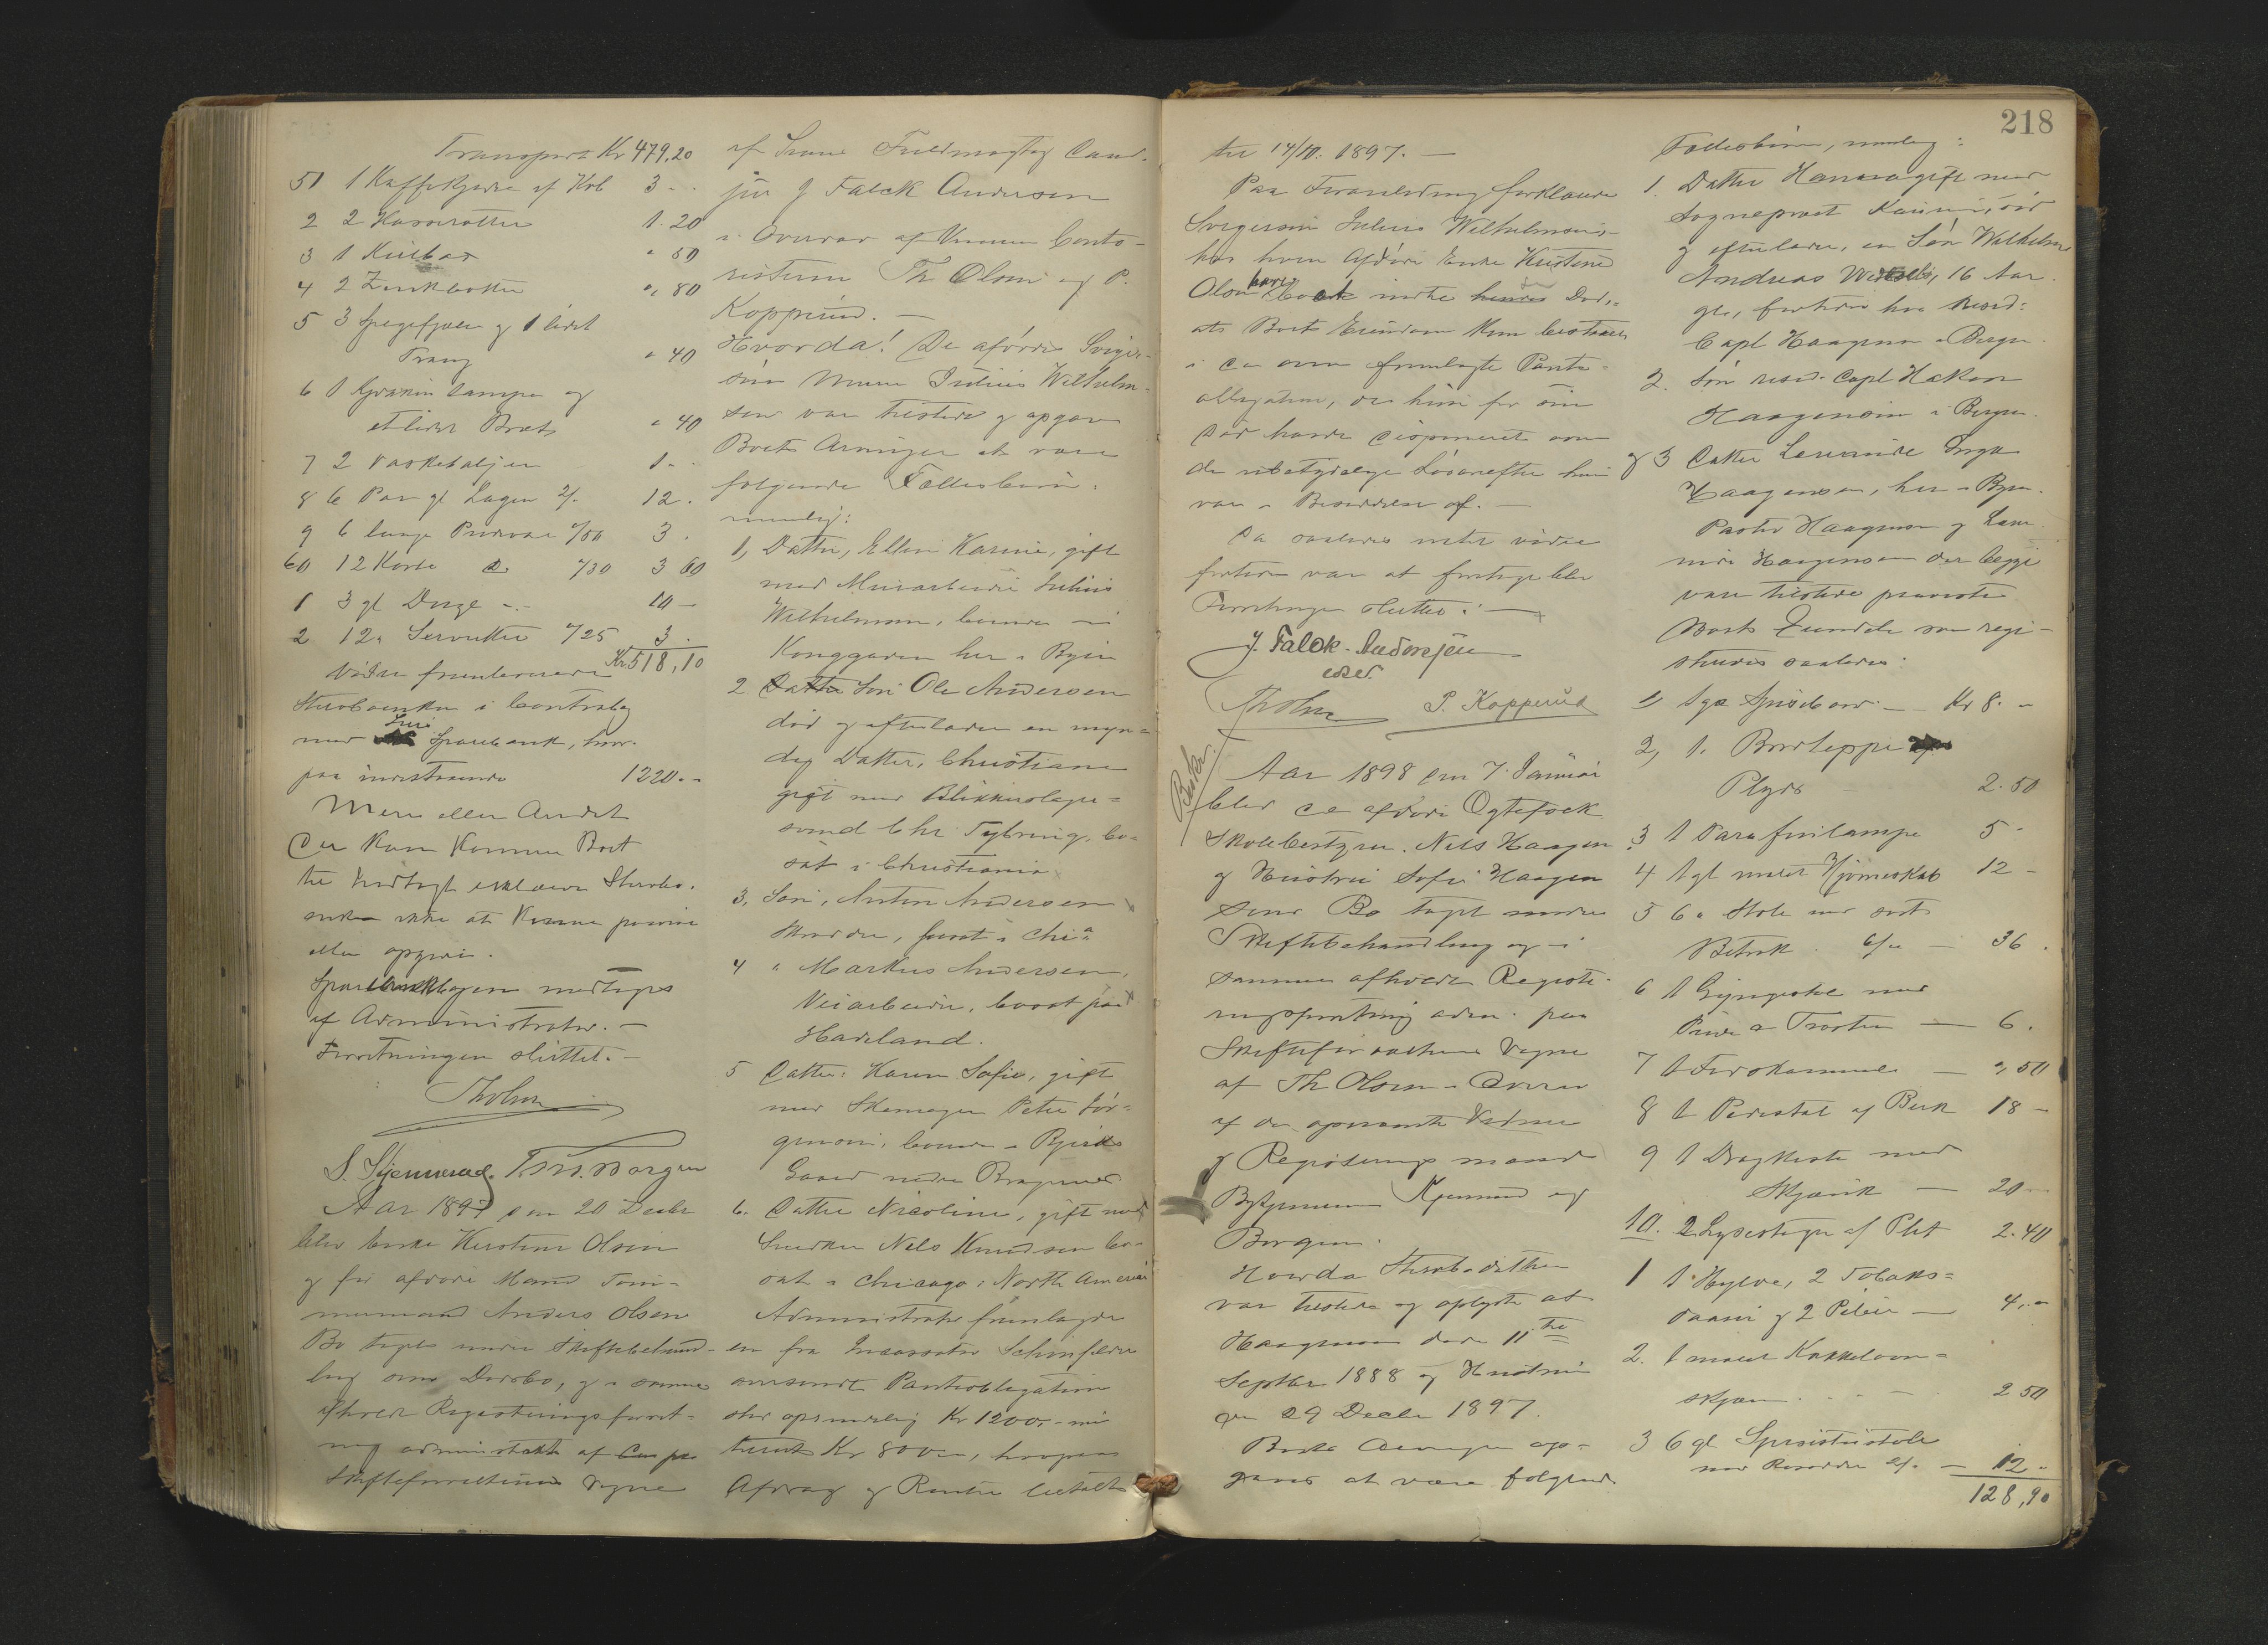 Transport Kr 479,20
51 1 Kaffekjedel af Kob 3 -
2 2 Kasserotter 1.20
3 1 " 50
4 2 Zinkbøtter ", 80
5 3 Spegefjæler og 1 lidet
Traug " 40
6 1 lampe og
et lidet Bræt " 40
7 2 Vaskebaljer 1 -
8 6 Par gl Lagen 2/. 12.
9 6 lange Pudevar /50 3.
60 12 Korte do /30 3 60
1 3 gl Duge -.- 10 -
2 12 " Servietter /25 3.
Kr 518,10
Videre fremleverede
Sterboenken i Contrabog
med Sparebank, hvor-
paa indestaaende 1220.-
Mere eller Andet
der kan komme Boet
til Indtægt erklærer Sterbo-
enken ikke at kunne paavise
eller opgive.
Sparebankbogen modtoges
af Administrator. -
Forretningen sluttet. -
ThOlsen
S. Stjernerud. Borgen
Aar 1897 den 20 Decbr
blev Enke Kirstine Olsen
og før afdøde Mand Tøm-
mermand Anders Olsens
Bo taget under Skiftebehand-
ling som Dødsbo, og i samme
afholdt Registreringsforret-
ning administreret af
Skifteforvalterens Vegne
af hans Fuldmægtig Cand.
jur J Falck Andersen
i Overvær af Vidnerne Conto-
risterne Th Olsen og P.
Kopperud. -
Hvorda! De afdødes Sviger-
søn Murer Julius Wilhelm-
sen var tilstede og opgav
Boets Arvinger at være
følgende Fællesbørn:
nemlig:
1, Datter, Ellen Karine, gift
med Murarbeider Julius
Wilhelmsen, boende i
Konggaden her i Byen
2 Datter Søn Ole Andersen
død og efterlader en myn-
dig Datter, Christiane
gift med Blikkenslager-
svend Chr Tybring, bo-
sat i Christiania
3, Søn, Anton Andersen
Skrædder, bosat i Chria
4 " Markus Andersen,
Veiarbeider, bosat paa
Hadeland.
5 Datter: Karen Sofie, gift
med Skomager Peter Jør-
gensen, boende i
Gaard nedre Bragernes
6. Datter Nicoline, gift med
Snedker Nels Knudsen bo-
sat i Chicago, North Amerika
Administrator fremlagde
en fra Incassator Schinfelder
oversendt Pantobligation
stor oprindelig Kr 1200,- nu
Kr 800 -, hvorpaa
Afdrag og Renter betalt
218
til 14/10. 1897. -
Paa Foranledning forklarede
Svigersøn Julius Wilhelmsen,
hos hvem Afdøde Enke Kirstine
Olsen havde boet indtil hendes Død,
at Boets Eiendom kun bestaaer
i den ovenfremlagte Pant-
obligation, da hun før sin
Død havde disponeret over
de ubetydelige Løsøreefter hun
var i Besiddelse af. -
Da saaledes intet videre
fortiden var at foretage blev
Forretningen sluttet. -
J. Falck-Andersen
edsv.
ThOlsen P. Kopperud
Aar 1898 den 7. Januar
blev de afdøde Ægtefolk
Skolebestyrer Nels Haagen
og Hustru Sofie Haagen
sens Bo taget under
Skiftebehandling og i
samme afholdt Registre-
ringsforretning adm. paa
Skifteforvalterens Vegne
af Th Olsen i Overvær
af de opnævnte Vidner
og Registreringsmænd
Bytjenerne Stjernerud og
Borgen.
Hvorda Sterbodatter
var tilstede og oplyste at
Haagensen døde 11te
Septbr 1888 og Hustru
den 29 Decbr 1897.
Boets Arvinger op-
gaves at være følgende
Fællesbørn, nemlig:
1. Datter Hanna gift med
Sogneprest død
og efterlader, en Søn Wilhelm
Andreas 16 Aar
gl., fortiden hos Resid:
Capl Haagensen i Bergen.
2. Søn resid. Capl Hakon
Haagensen i Bergen.
og 3 Datter Inga
Haagensen, her i Byen.
Pastor Haagensen og
Haagensen der begge
vare tilstede paaviste
Boets Eiendele som regi-
streres saaledes:
1, 1 gl Spisebord - Kr 8. -
2, 1. Bordteppe
Plyds 2.50
3 1 Parafinlampe 5 -
4 1 gl malet Hjørneskab 12 -
5 6 " Stole med sort
Betræk. 6/. - 36.
6 1 Gyngestol med
Pude - 6.
7 1 Fodskammel - ", 50
8 1 Pidestal af Birk 18 -
9 1 Dragkiste med
Skjænk - 20 -
10. 2 Lysestager af Plet 2.40
1 1 Hylde, 2 Tobaks-
daaser og 2 Piber - 4,.-
2. 1 malet Kakkelovn-
skjærm. - 2 50
3 6 gl Spisestuestole
med 2/. - 12 -
128,90